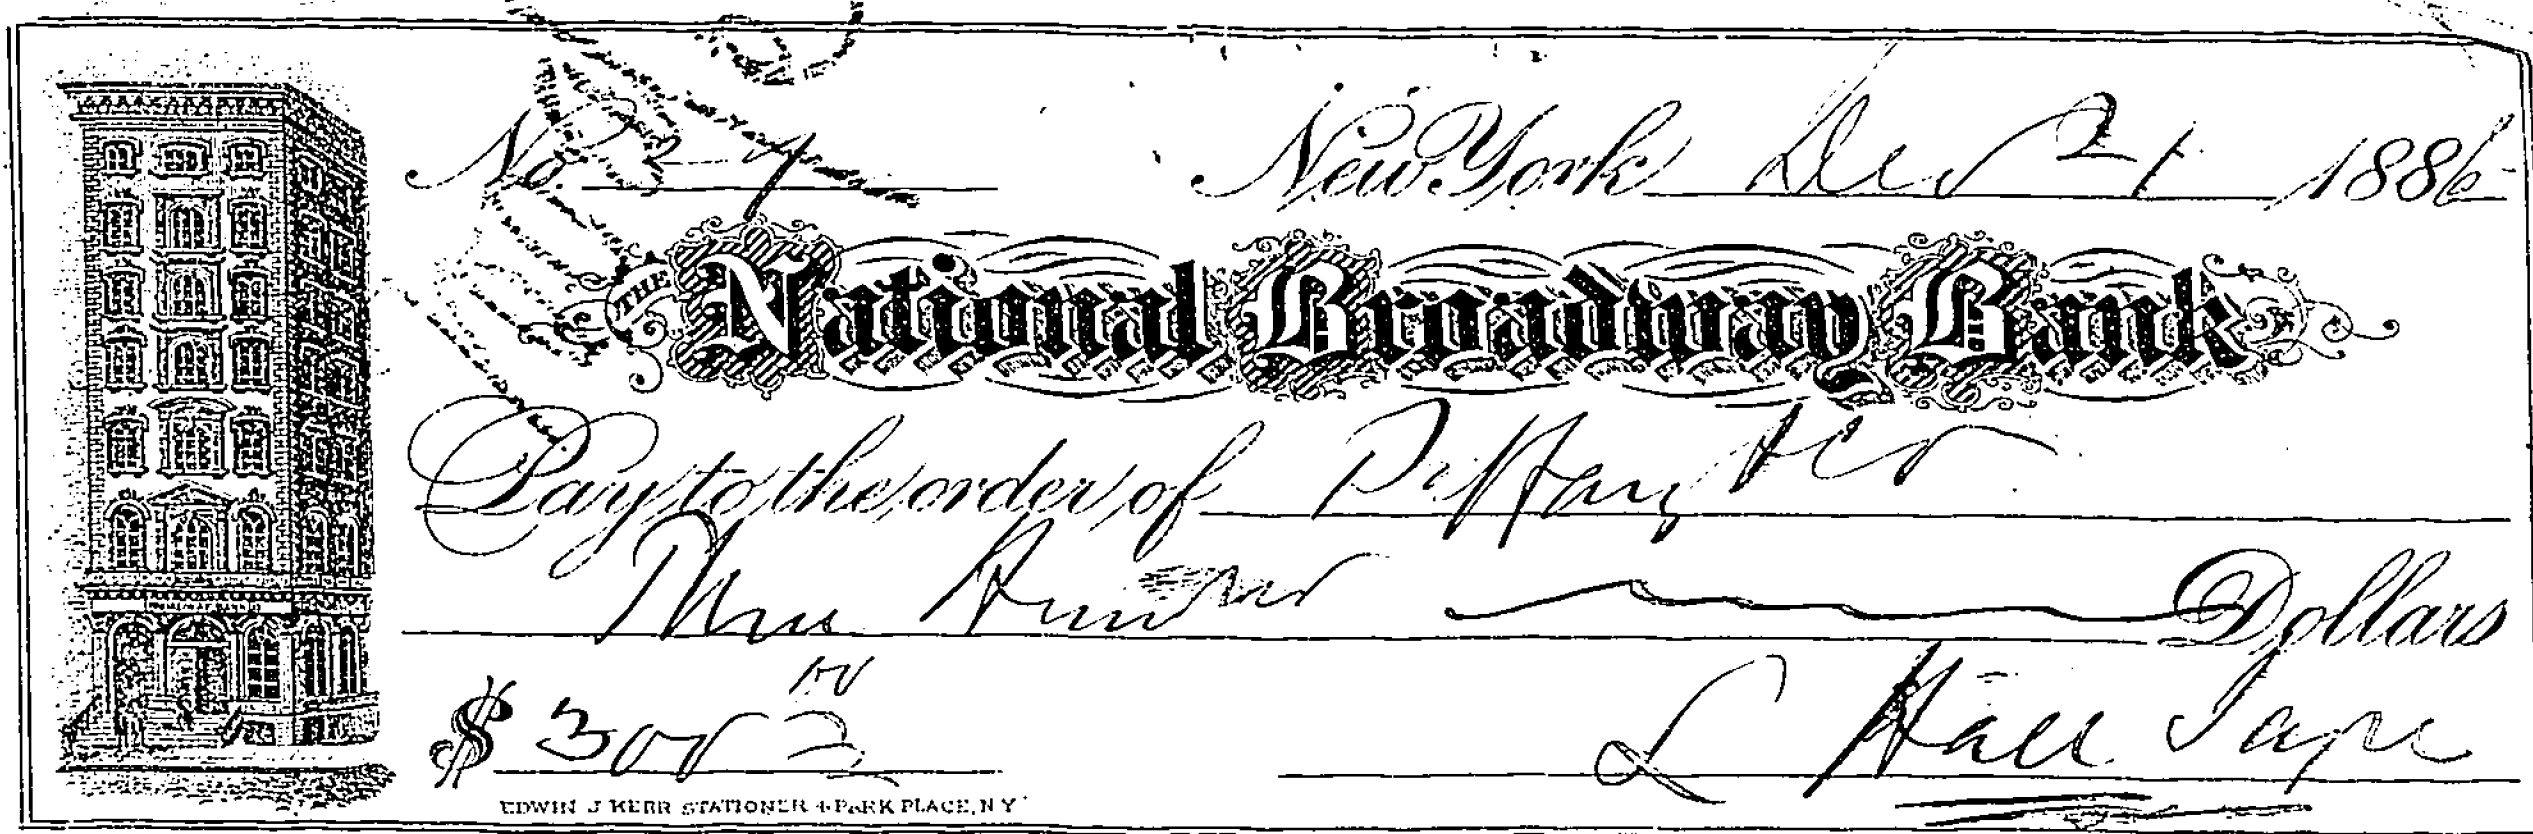 No. 37
New York Dec 21 1886
THE National Broadway Bank
Pay to the order of Tiffany & Co
Three Hundred Dollars
$ 300
L Hall
EDWIN J KERR STATIONER 4 PARK PLACE, N Y